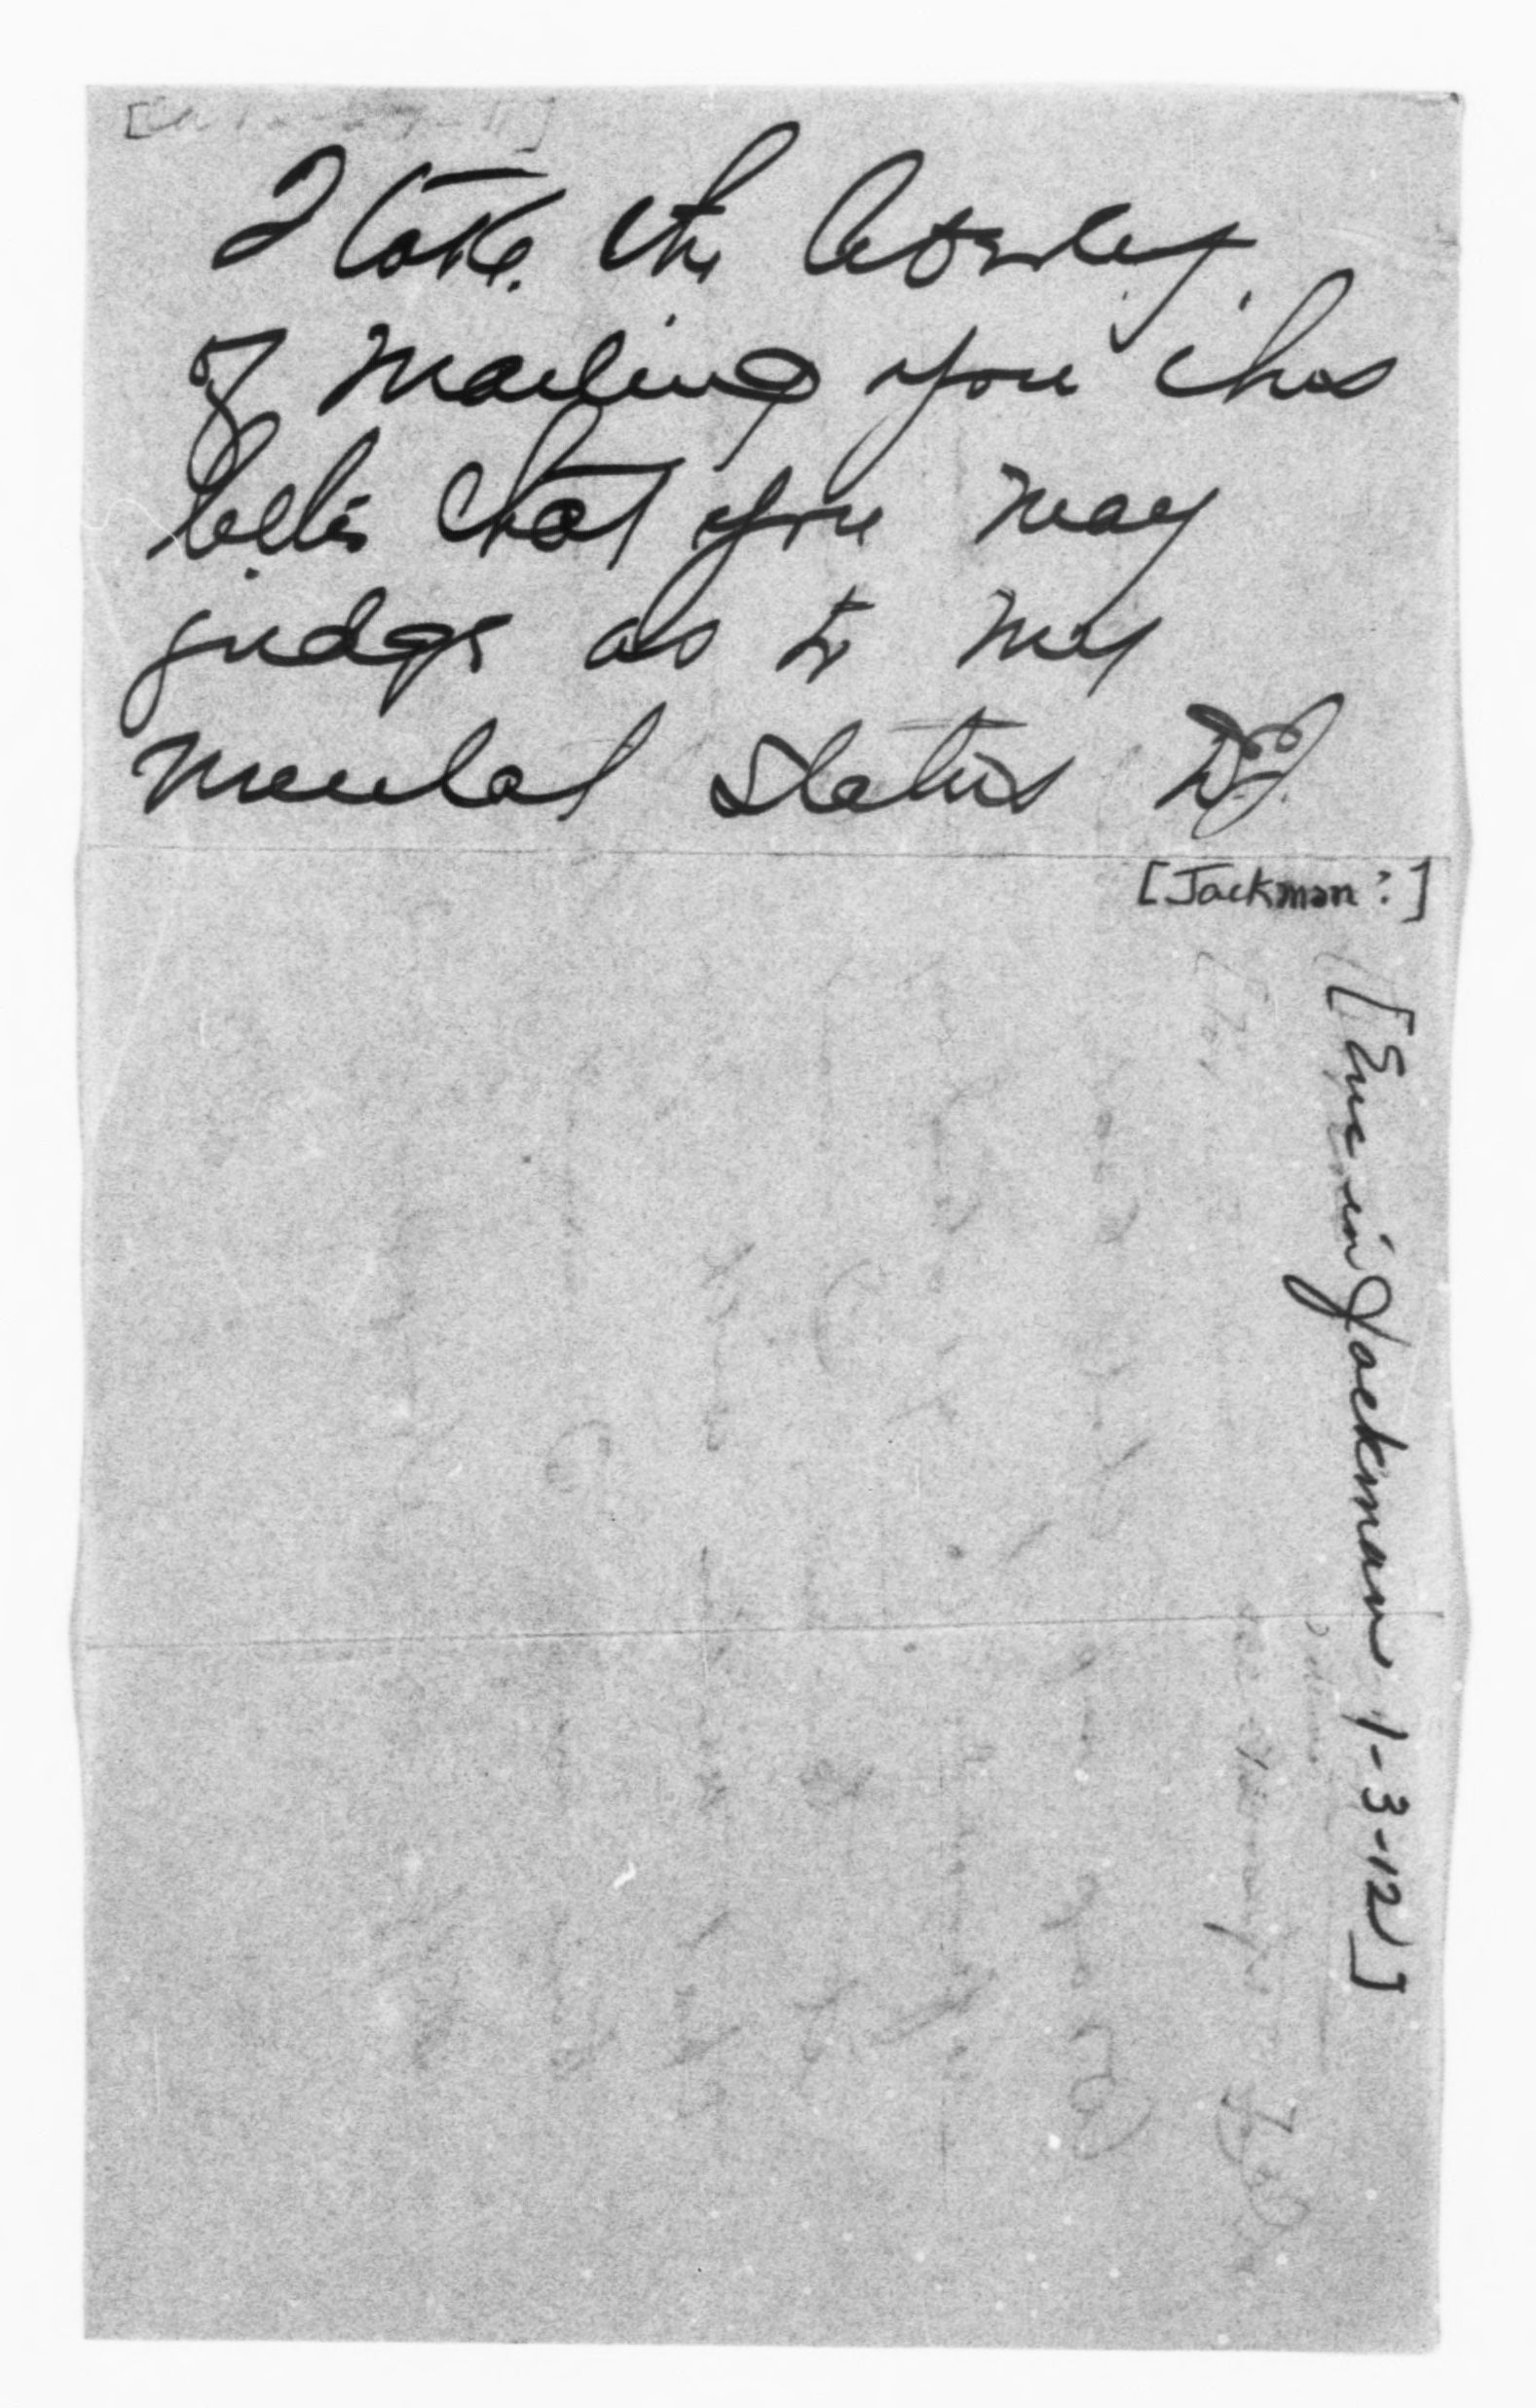 I take the liberty
of mailing you this
letter that you may
judge as to my
mental status DJ
[Jackman?]
[Enc in Jackman 1-3-12]